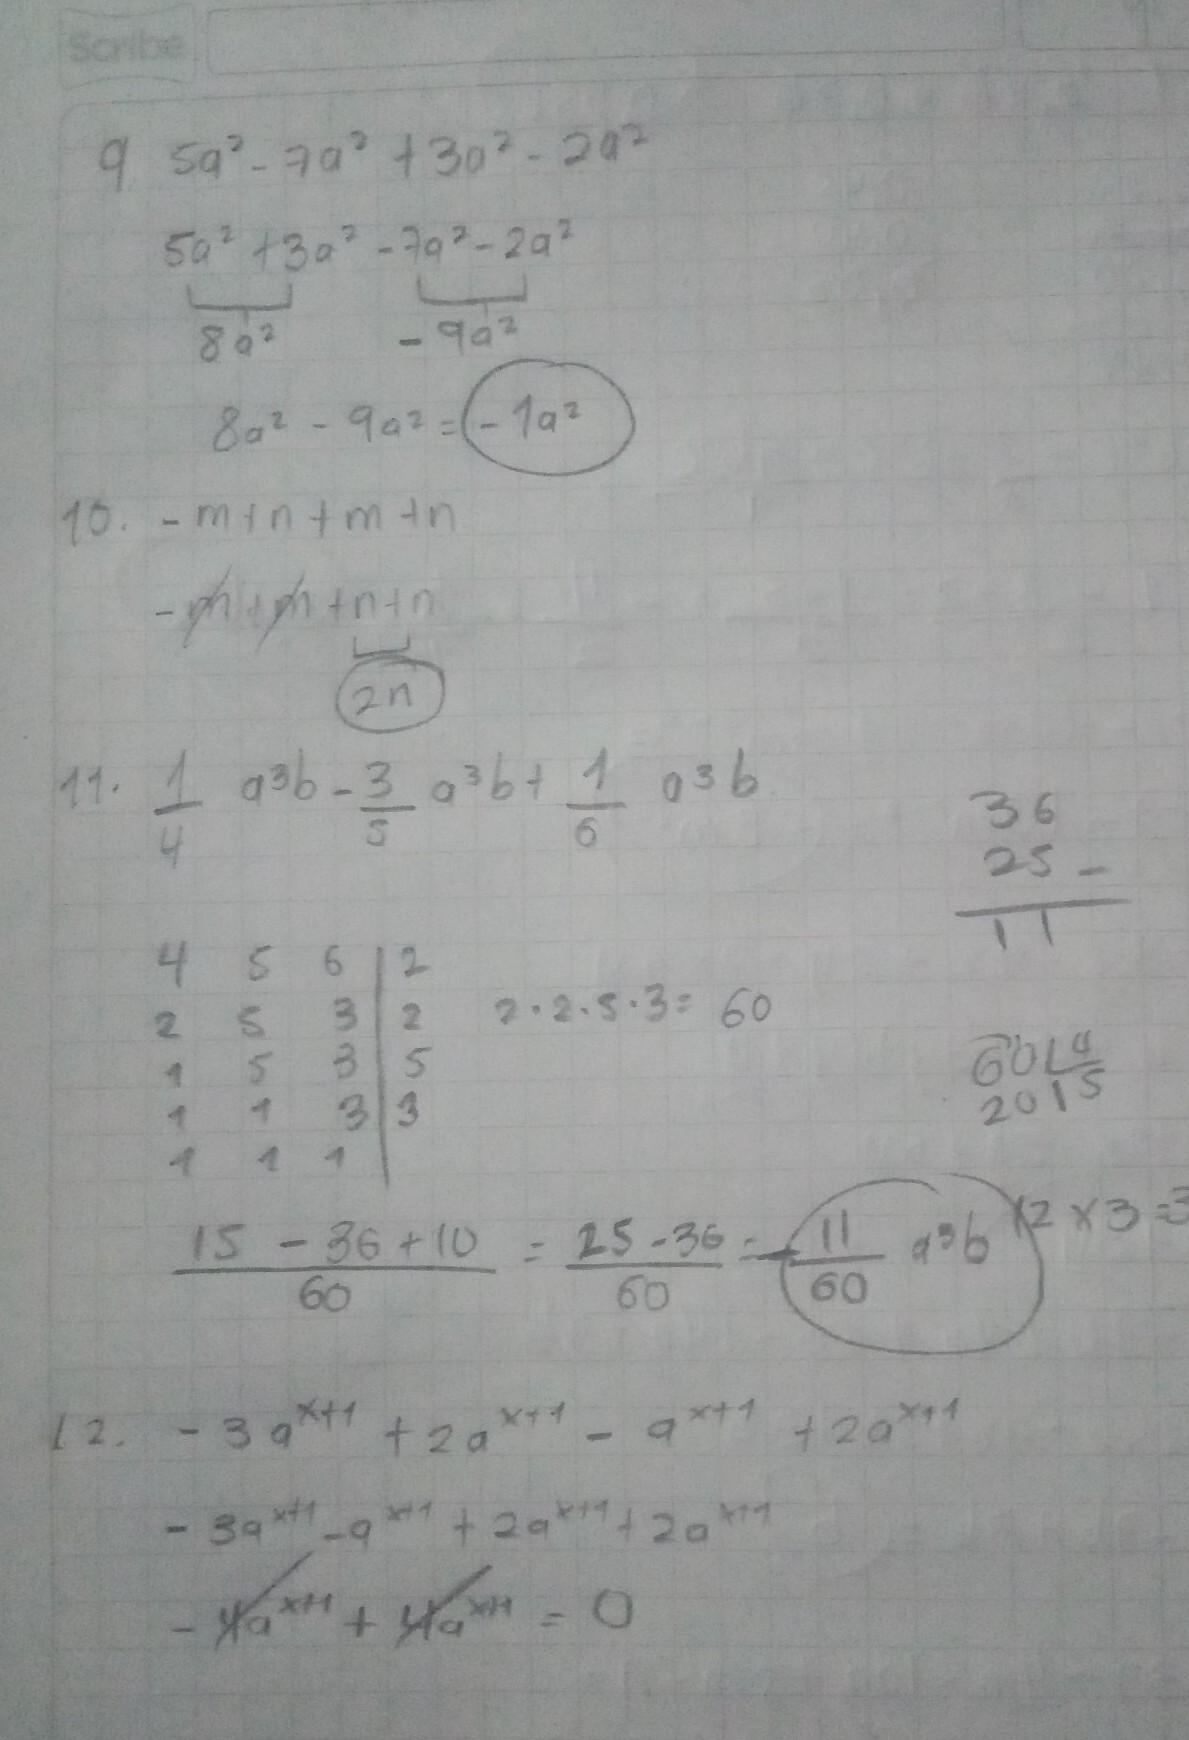 Scribe
9 5a² - 7a² + 3a² - 2a²
5a² + 3a² - 7a² - 2a²
8a² - 9a²
8a² - 9a² = -1a²
10. - m + n + m + n
- m + m + n + n
2n
11. 1/4 a³b - 3/5 a³b + 1/6 a³b
36
25 -
11
4 5 6 | 2
2 5 3 | 2 2·2·5·3 = 60
1 5 3 | 5
1 1 3 | 3
1 1 1
60 4
20 15
12 x 3 = 3
15 - 36 + 10 / 60 = 25 - 36 / 60 = - 11/60 a³b
12. - 3a^x+1 + 2a^x+1 - a^x+1 + 2a^x+1
- 3a^x+1 - a^x+1 + 2a^x+1 + 2a^x+1
- 4a^x+1 + 4a^x+1 = 0